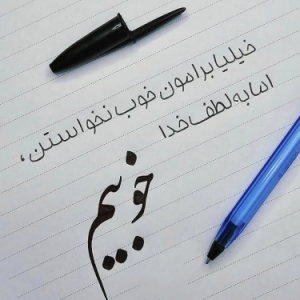 خیلیا برامون خوب نخواستن،
اما به لطف خدا
خوبیم